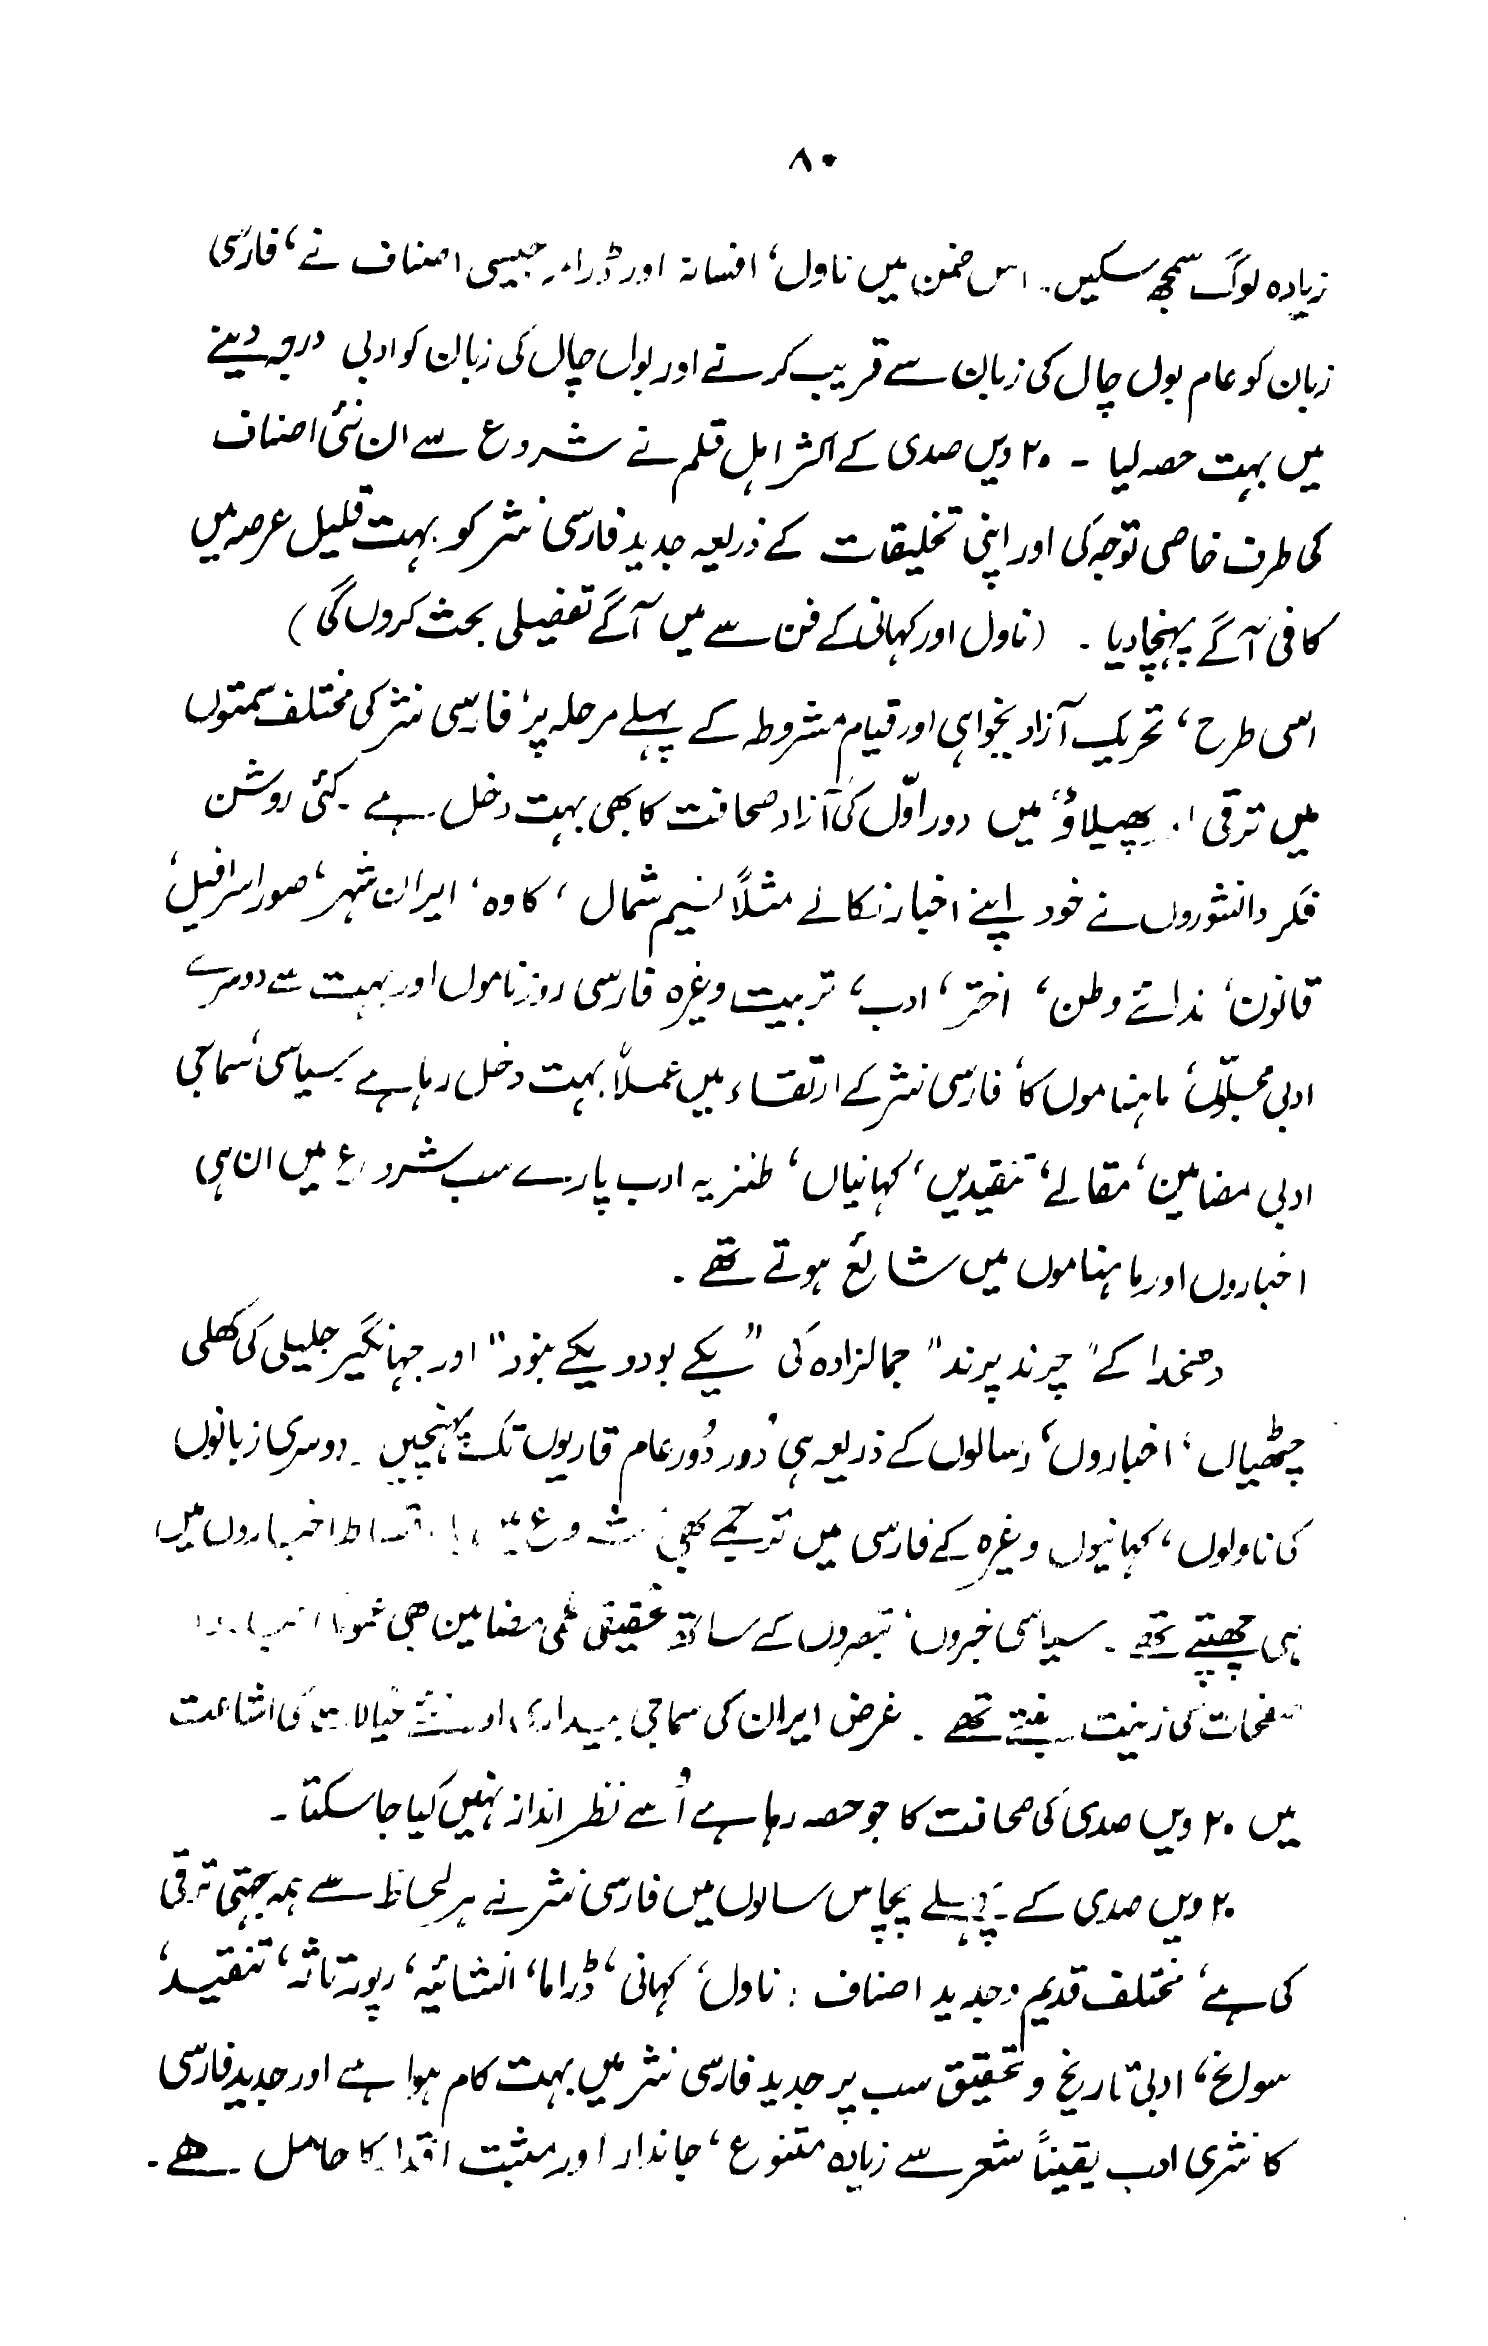 ۸۰
زیادہ لوگ سمجھ سکیں۔ اس ضمن میں ناول، افسانہ اور ڈرامہ جیسی اصناف نے، فارسی
زبان کو عام بول چال کی زبان سے قریب کرتے اور بول چال کی زبان کو ادبی درجہ دینے
میں بہت حصہ لیا ۔ ۲۰ ویں صدی کے اکثر اہل قلم نے شروع سے ان نئی اصناف
کی طرف خاصی توجہ کی اور اپنی تخلیقات کے ذریعہ جدید فارسی نثر کو بہت قلیل عرصہ میں
کافی آگے پہنچا دیا ۔ (ناول اور کہانی کے فن سے میں آگے تفصیلی بحث کروں گی)
اسی طرح، تحریک آزادیخواہی اور قیام مشروطہ کے پہلے مرحلہ پر، فارسی نثر کی مختلف سمتوں
میں ترقی پھیلاؤ، میں دور اوّل کی آزاد صحافت کا بھی بہت دخل ہے ۔ کئی روشن
فکر دانشوروں نے خود اپنے اخبار نکالے مثلاً نسیم شمال، کاوہ، ایران شہر، صور اسرافیل،
قانون، ندائے وطن، اختر، ادب، تربیت وغیرہ فارسی روزناموں اور بہت سے دوسرے
ادبی مجلّوں، ماہناموں کا، فارسی نثر کے ارتقاء میں عملاً بہت دخل رہا ہے ۔ سیاسی، سماجی
ادبی مضامین، مقالے، تنقیدیں، کہانیاں، طنزیہ ادب پارے سب شروع میں ان ہی
اخباروں اور ماہناموں میں شائع ہوتے تھے ۔
دھخدا کے "چرند پرند" جمالزادہ کی "یکے بود و یکے نبود" اور جہانگیر جلیلی کی کھلی
چٹھیاں، اخباروں، رسالوں کے ذریعہ ہی دُور دُور عام قاریوں تک پہنچیں ۔ دوسری زبانوں
کی ناولوں، کہانیوں وغیرہ کے فارسی میں ترجمے بھی شروع میں اخباروں میں
ہی چھپتے تھے ۔ سیاسی خبروں، تبصروں کے ساتھ تحقیقی علمی مضامین بھی
صفحات کی زینت بنتے تھے ۔ غرض ایران کی سماجی بیداری اور نئے خیالات کی اشاعت
میں ۲۰ ویں صدی کی صحافت کا جو حصہ رہا ہے اُسے نظر انداز نہیں کیا جا سکتا ۔
۲۰ ویں صدی کے پہلے پچاس سالوں میں فارسی نثر نے ہر لحاظ سے ہمہ جہتی ترقی
کی ہے، مختلف قدیم و جدید اصناف : ناول، کہانی، ڈراما، انشائیہ، رپورتاژ، تنقید،
سوانح، ادبی تاریخ و تحقیق سب پر جدید فارسی نثر میں بہت کام ہوا ہے اور جدید فارسی
کا نثری ادب یقیناً شعر سے زیادہ متنوع، جاندار اور مثبت اقدار کا حامل ہے ۔